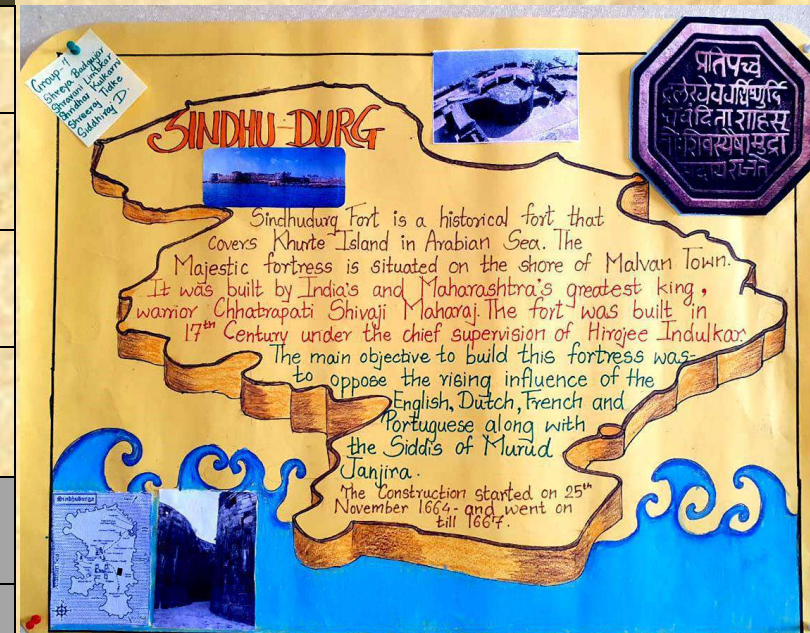 Group-4
Shreya Badgujar
Shravani Limbkar
Shridhar Kulkarni
Shreeraj Tidke
Siddhiraj D.
SINDHU-DURG
Sindhudurg Fort is a historical fort that
covers Khurte Island in Arabian Sea. The
Majestic fortress is situated on the shore of Malvan Town.
It was built by India's and Maharashtra's greatest king,
warrior Chhatrapati Shivaji Maharaj. The fort was built in
17th Century under the chief supervision of Hirojee Indulkar.
The main objective to build this fortress was-
to oppose the rising influence of the
English, Dutch, French and
Portuguese along with
the Siddis of Murud
Janjira.
The Construction started on 25th
November 1664- and went on
till 1667.
प्रतिपच्च
Sindhudurg